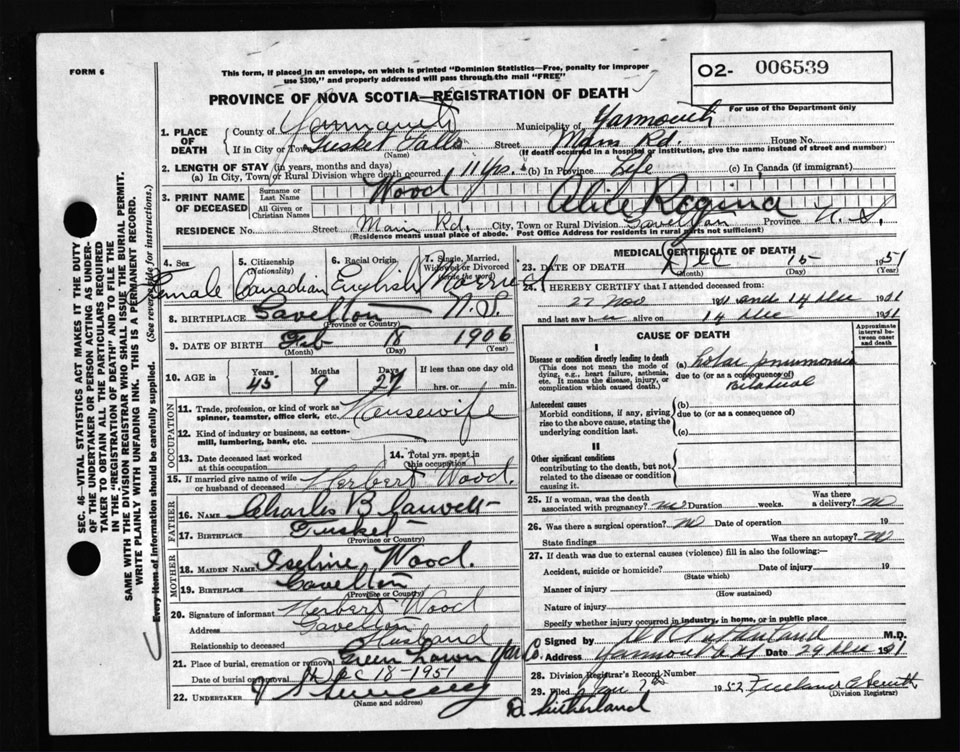 FORM 6
This form, if placed in an envelope, on which is printed "Dominion Statistics—Free, penalty for improper
use $300," and properly addressed will pass through the mail "FREE"
02- 006539
For use of the Department only
PROVINCE OF NOVA SCOTIA—REGISTRATION OF DEATH
1. PLACE OF DEATH
County of Yarmouth Municipality of Yarmouth
If in City or Town Tusket Falls Street Main Rd. House No.
(Name) (If death occurred in a hospital or institution, give the name instead of street and number)
2. LENGTH OF STAY (in years, months and days)
(a) In City, Town or Rural Division where death occurred 11 Yrs. (b) In Province Life (c) In Canada (if immigrant)
3. PRINT NAME OF DECEASED
Surname or Last Name Wood
All Given or Christian Names Alice Regina
RESIDENCE No. Street Main Rd. City, Town or Rural Division Gavelton Province N.S.
(Residence means usual place of abode. Post Office Address for residents in rural parts not sufficient)
4. Sex Female
5. Citizenship (Nationality) Canadian
6. Racial Origin English
7. Single, Married, Widowed or Divorced (write the word) Married
8. BIRTHPLACE Gavelton N.S.
(Province or Country)
9. DATE OF BIRTH Feb 18 1906
(Month) (Day) (Year)
10. AGE in Years Months Days If less than one day old
45 9 27 hrs. or min.
OCCUPATION
11. Trade, profession, or kind of work as spinner, teamster, office clerk, etc. Housewife
12. Kind of industry or business, as cotton-mill, lumbering, bank, etc.
13. Date deceased last worked at this occupation
14. Total yrs. spent in this occupation
15. If married give name of wife or husband of deceased Herbert Wood.
FATHER
16. NAME Charles B
17. BIRTHPLACE Tusket
(Province or Country)
MOTHER
18. MAIDEN NAME Wood.
19. BIRTHPLACE Gavelton
(Province or Country)
20. Signature of informant Herbert Wood
Address Gavelton
Relationship to deceased Husband
21. Place of burial, cremation or removal Green Lawn
Date of burial or removal Dec 18-1951
22. UNDERTAKER
(Name and address)
SEC. 46—VITAL STATISTICS ACT MAKES IT THE DUTY
OF THE UNDERTAKER OR PERSON ACTING AS UNDER-
TAKER TO OBTAIN ALL THE PARTICULARS REQUIRED
IN THE "REGISTRATION OF DEATH" AND TO FILE THE
SAME WITH THE DIVISION REGISTRAR WHO SHALL ISSUE THE BURIAL PERMIT.
WRITE PLAINLY WITH UNFADING INK. THIS IS A PERMANENT RECORD.
Every item of information should be carefully supplied. (See reverse side for instructions.)
MEDICAL CERTIFICATE OF DEATH
23. DATE OF DEATH Dec 15 1951
(Month) (Day)
24. I HEREBY CERTIFY that I attended deceased from:
27 Nov 1951 and 14 Dec 1951
and last saw h alive on 14 Dec 1951
CAUSE OF DEATH
Approximate interval between onset and death
I
Disease or condition directly leading to death
(This does not mean the mode of
dying, e.g., heart failure, asthenia,
etc. It means the disease, injury, or
complication which caused death.)
(a) Lobar pneumonia
due to (or as a consequence of)
Bilateral
Antecedent causes
Morbid conditions, if any, giving
rise to the above cause, stating the
underlying condition last.
(b)
due to (or as a consequence of)
(c)
II
Other significant conditions
contributing to the death, but not
related to the disease or condition
causing it
25. If a woman, was the death associated with pregnancy? no Duration weeks. Was there a delivery? no
26. Was there a surgical operation? no Date of operation 19
State findings Was there an autopsy? no
27. If death was due to external causes (violence) fill in also the following:—
Accident, suicide or homicide? Date of injury 19
(State which)
Manner of injury
(How sustained)
Nature of injury
Specify whether injury occurred in industry, in home, or in public place
Signed by Sutherland M.D.
Address Yarmouth Date 29 Dec 1951
28. Division Registrar's Record Number
29. Filed Jan 1952
(Division Registrar)
Sutherland